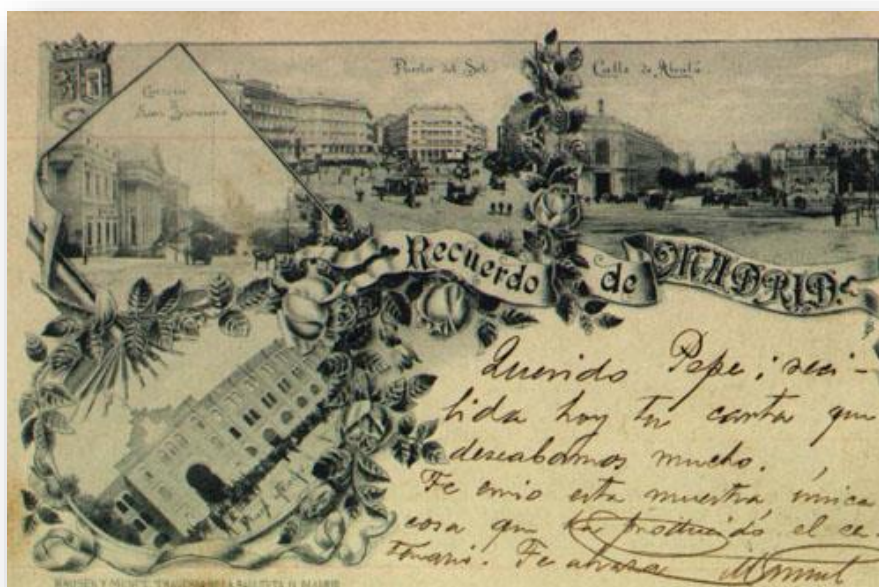 Carrera
de
San Jeronimo
Puerta del Sol
Calle de Alcalá
Recuerdo de MADRID.
Querido Pepe; reci-
bida hoy tu carta que
deseabamos mucho.
Te envio esta muestra única
cosa que ha producido el ce-
tenario. Te abraza Manuel
HAUSER Y MENET
MADRID